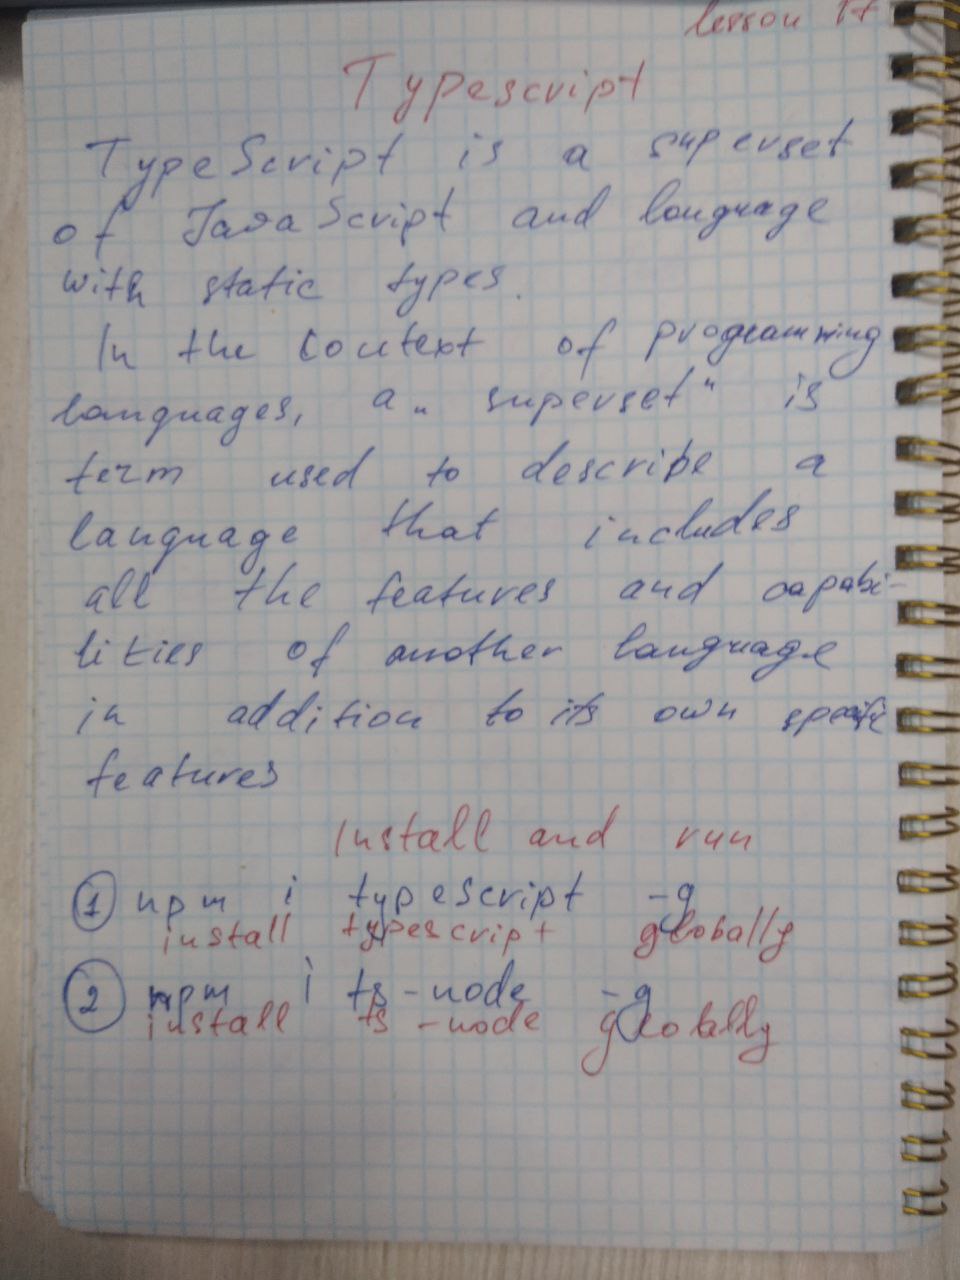 lesson 17
Typescript
TypeScript is a superset
of JavaScript and language
with static types.
In the context of programming
languages, a „superset" is
term used to describe a
language that includes
all the features and capabi-
lities of another language
in addition to its own specific
features
Install and run
1 npm i typescript -g
install typescript globally
2 npm i ts-node -g
install ts-node globally